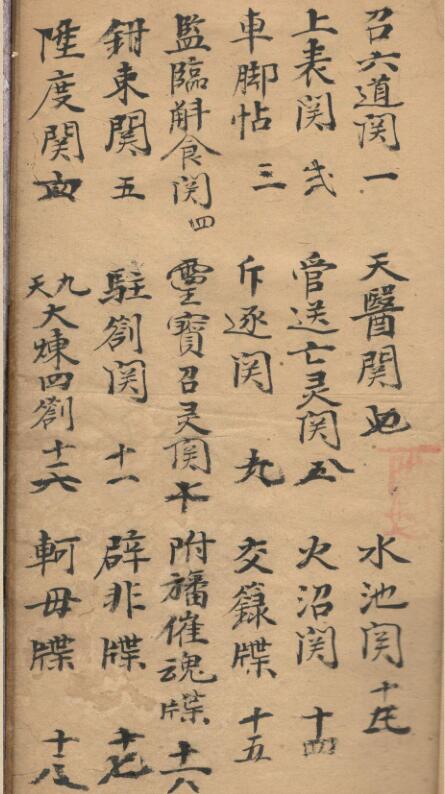 召六道関 一
上表関 弍
車脚帖 三
監臨斛食関 四
鉗束関 五
陞度関
天醫関 七
管送亡灵関 八
斥逐関 九
靈寶召灵関 十
駐劄関 十一
九天大煉四劄
水池関
火沼関 十四
交籙牒 十五
附旛催魂牒
辟非牒 十七
軻毋牒 十八